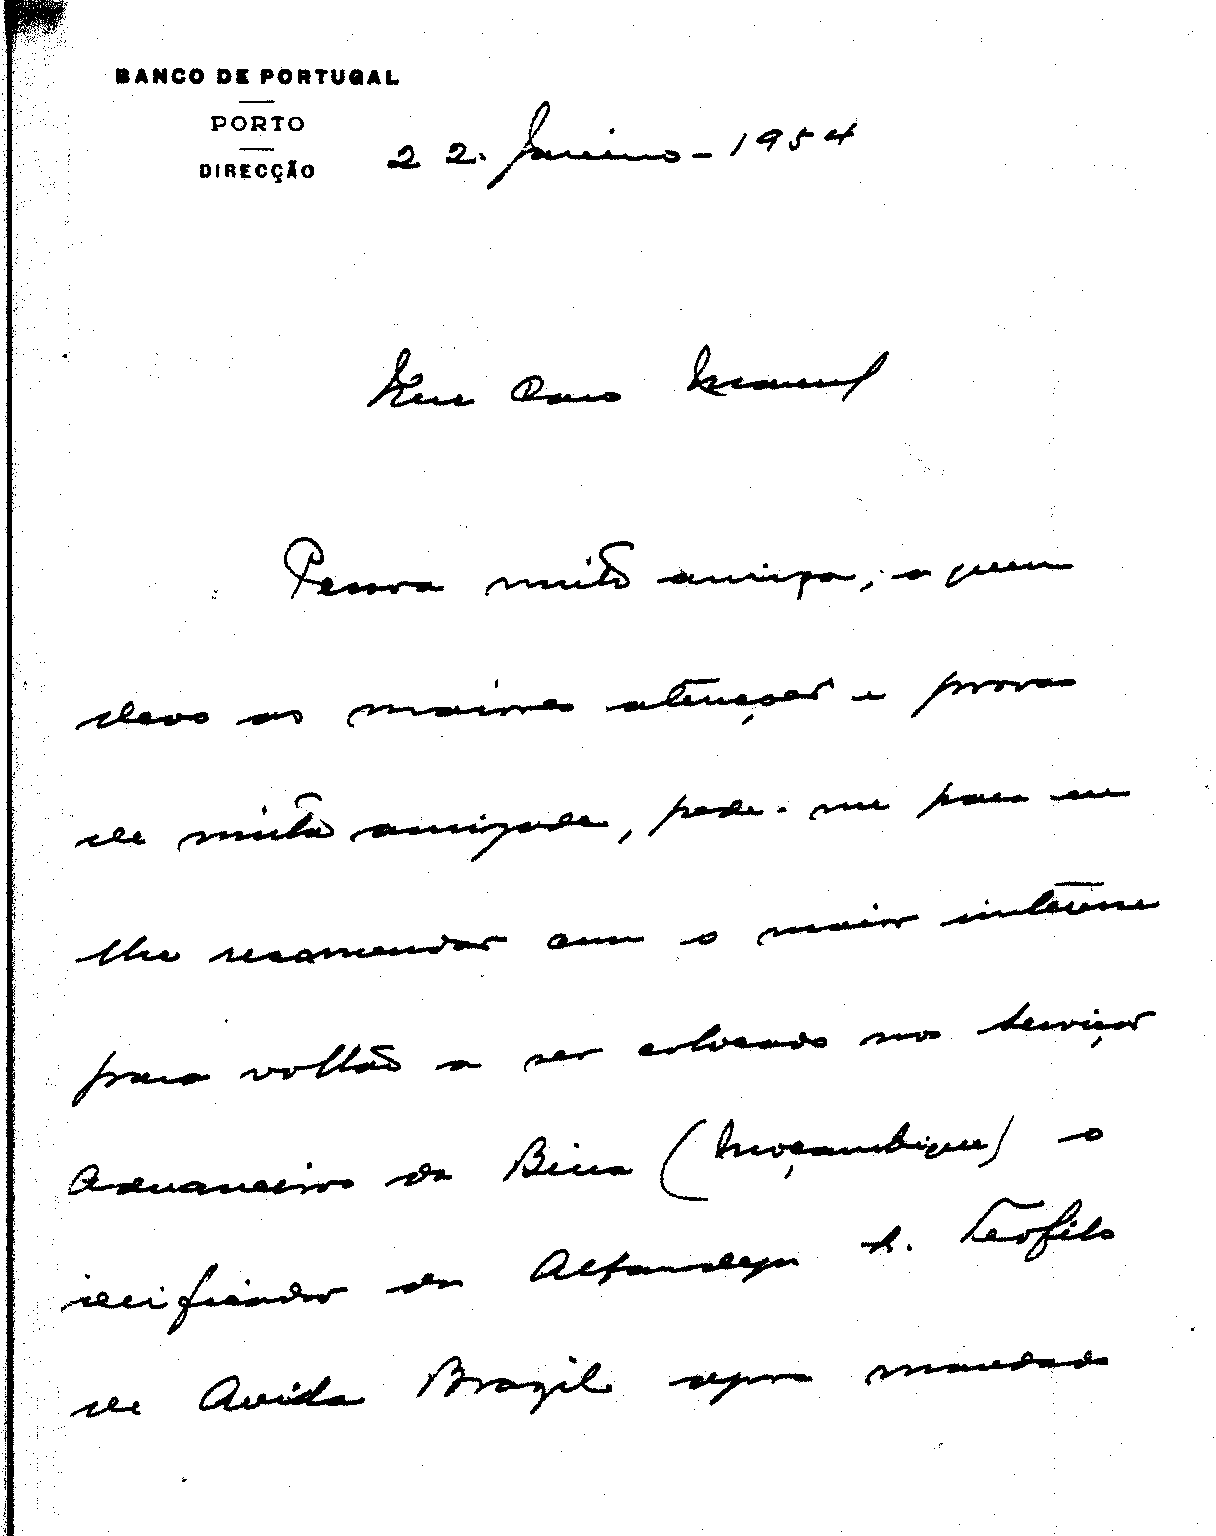 BANCO DE PORTUGAL
PORTO
DIRECÇÃO
22. Janeiro - 1954
Meu Caro Manuel
Pessoa muito amiga, a quem
devo as maiores atenções e provas
de muita amizade, pede-me para eu
lhe recomendar com o maior interesse
para voltar a ser colocado nos serviços
Aduaneiros da Beira (Moçambique) o
verificador da Alfandega Sr. Teofilo
de Avila Brazil agora mandado